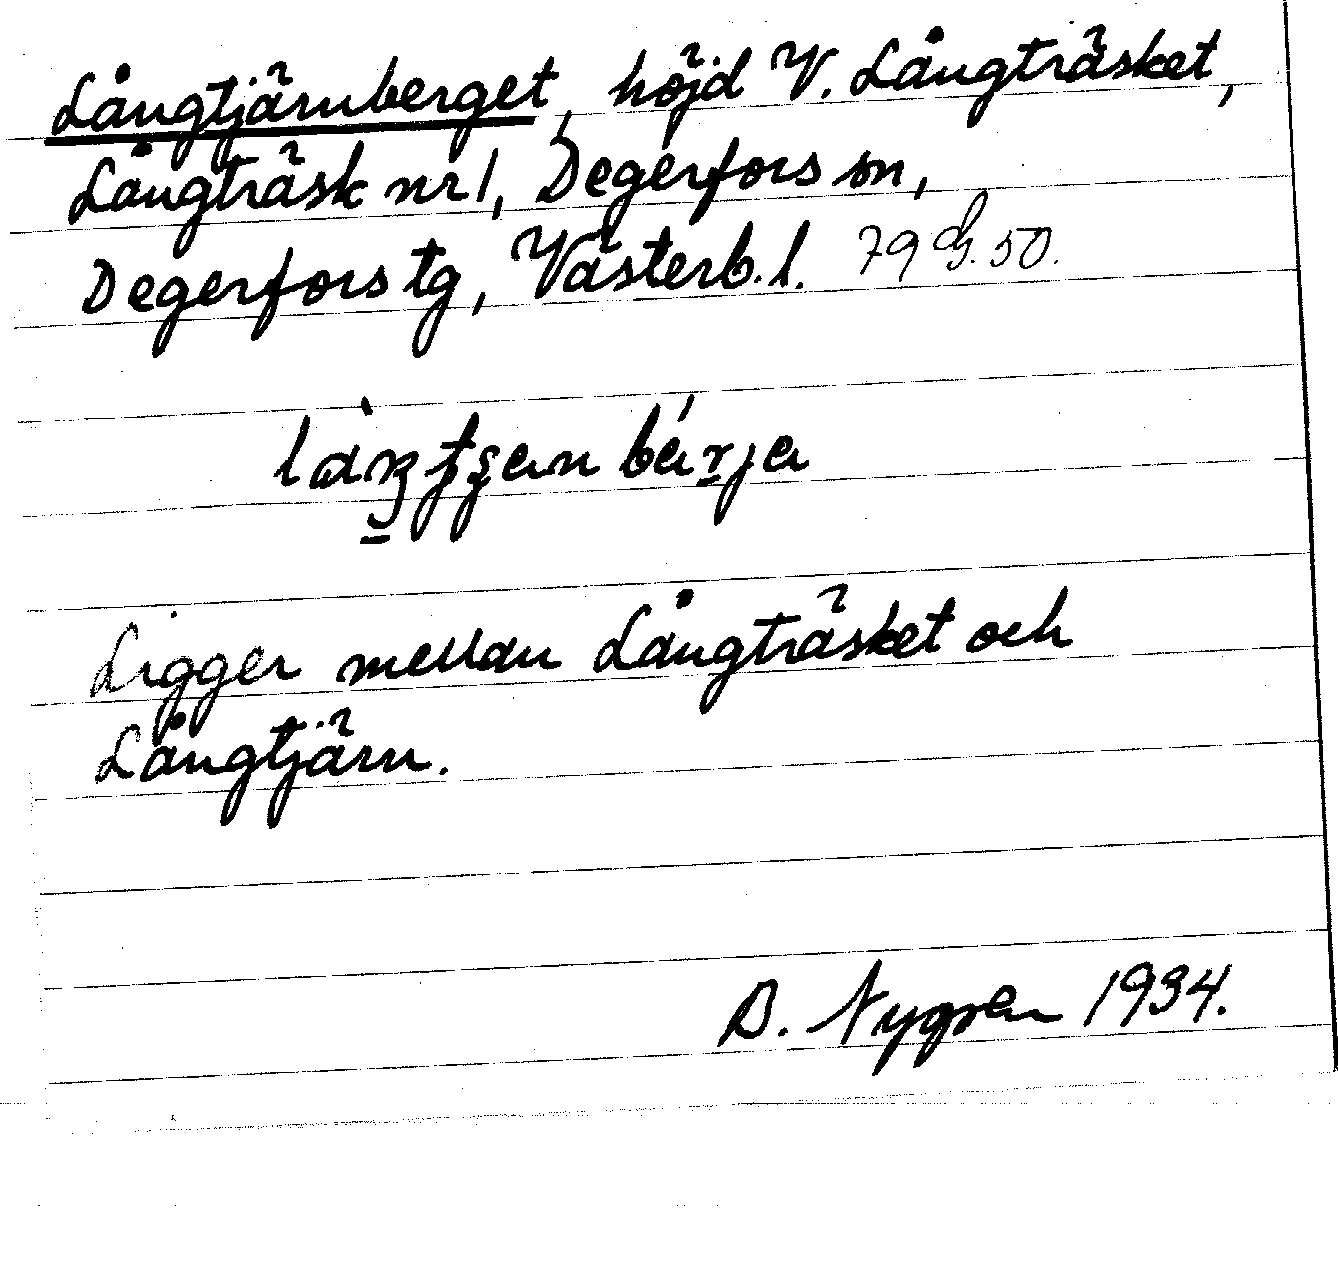 Långtjärnberget, höjd V. Långträsket,
Långträsk nr 1, Degerfors sn,
Degerfors tg, Västerb. l. 79 G. 50.
Ligger mellan Långträsket och
Långtjärn.
B. Nygren 1934.